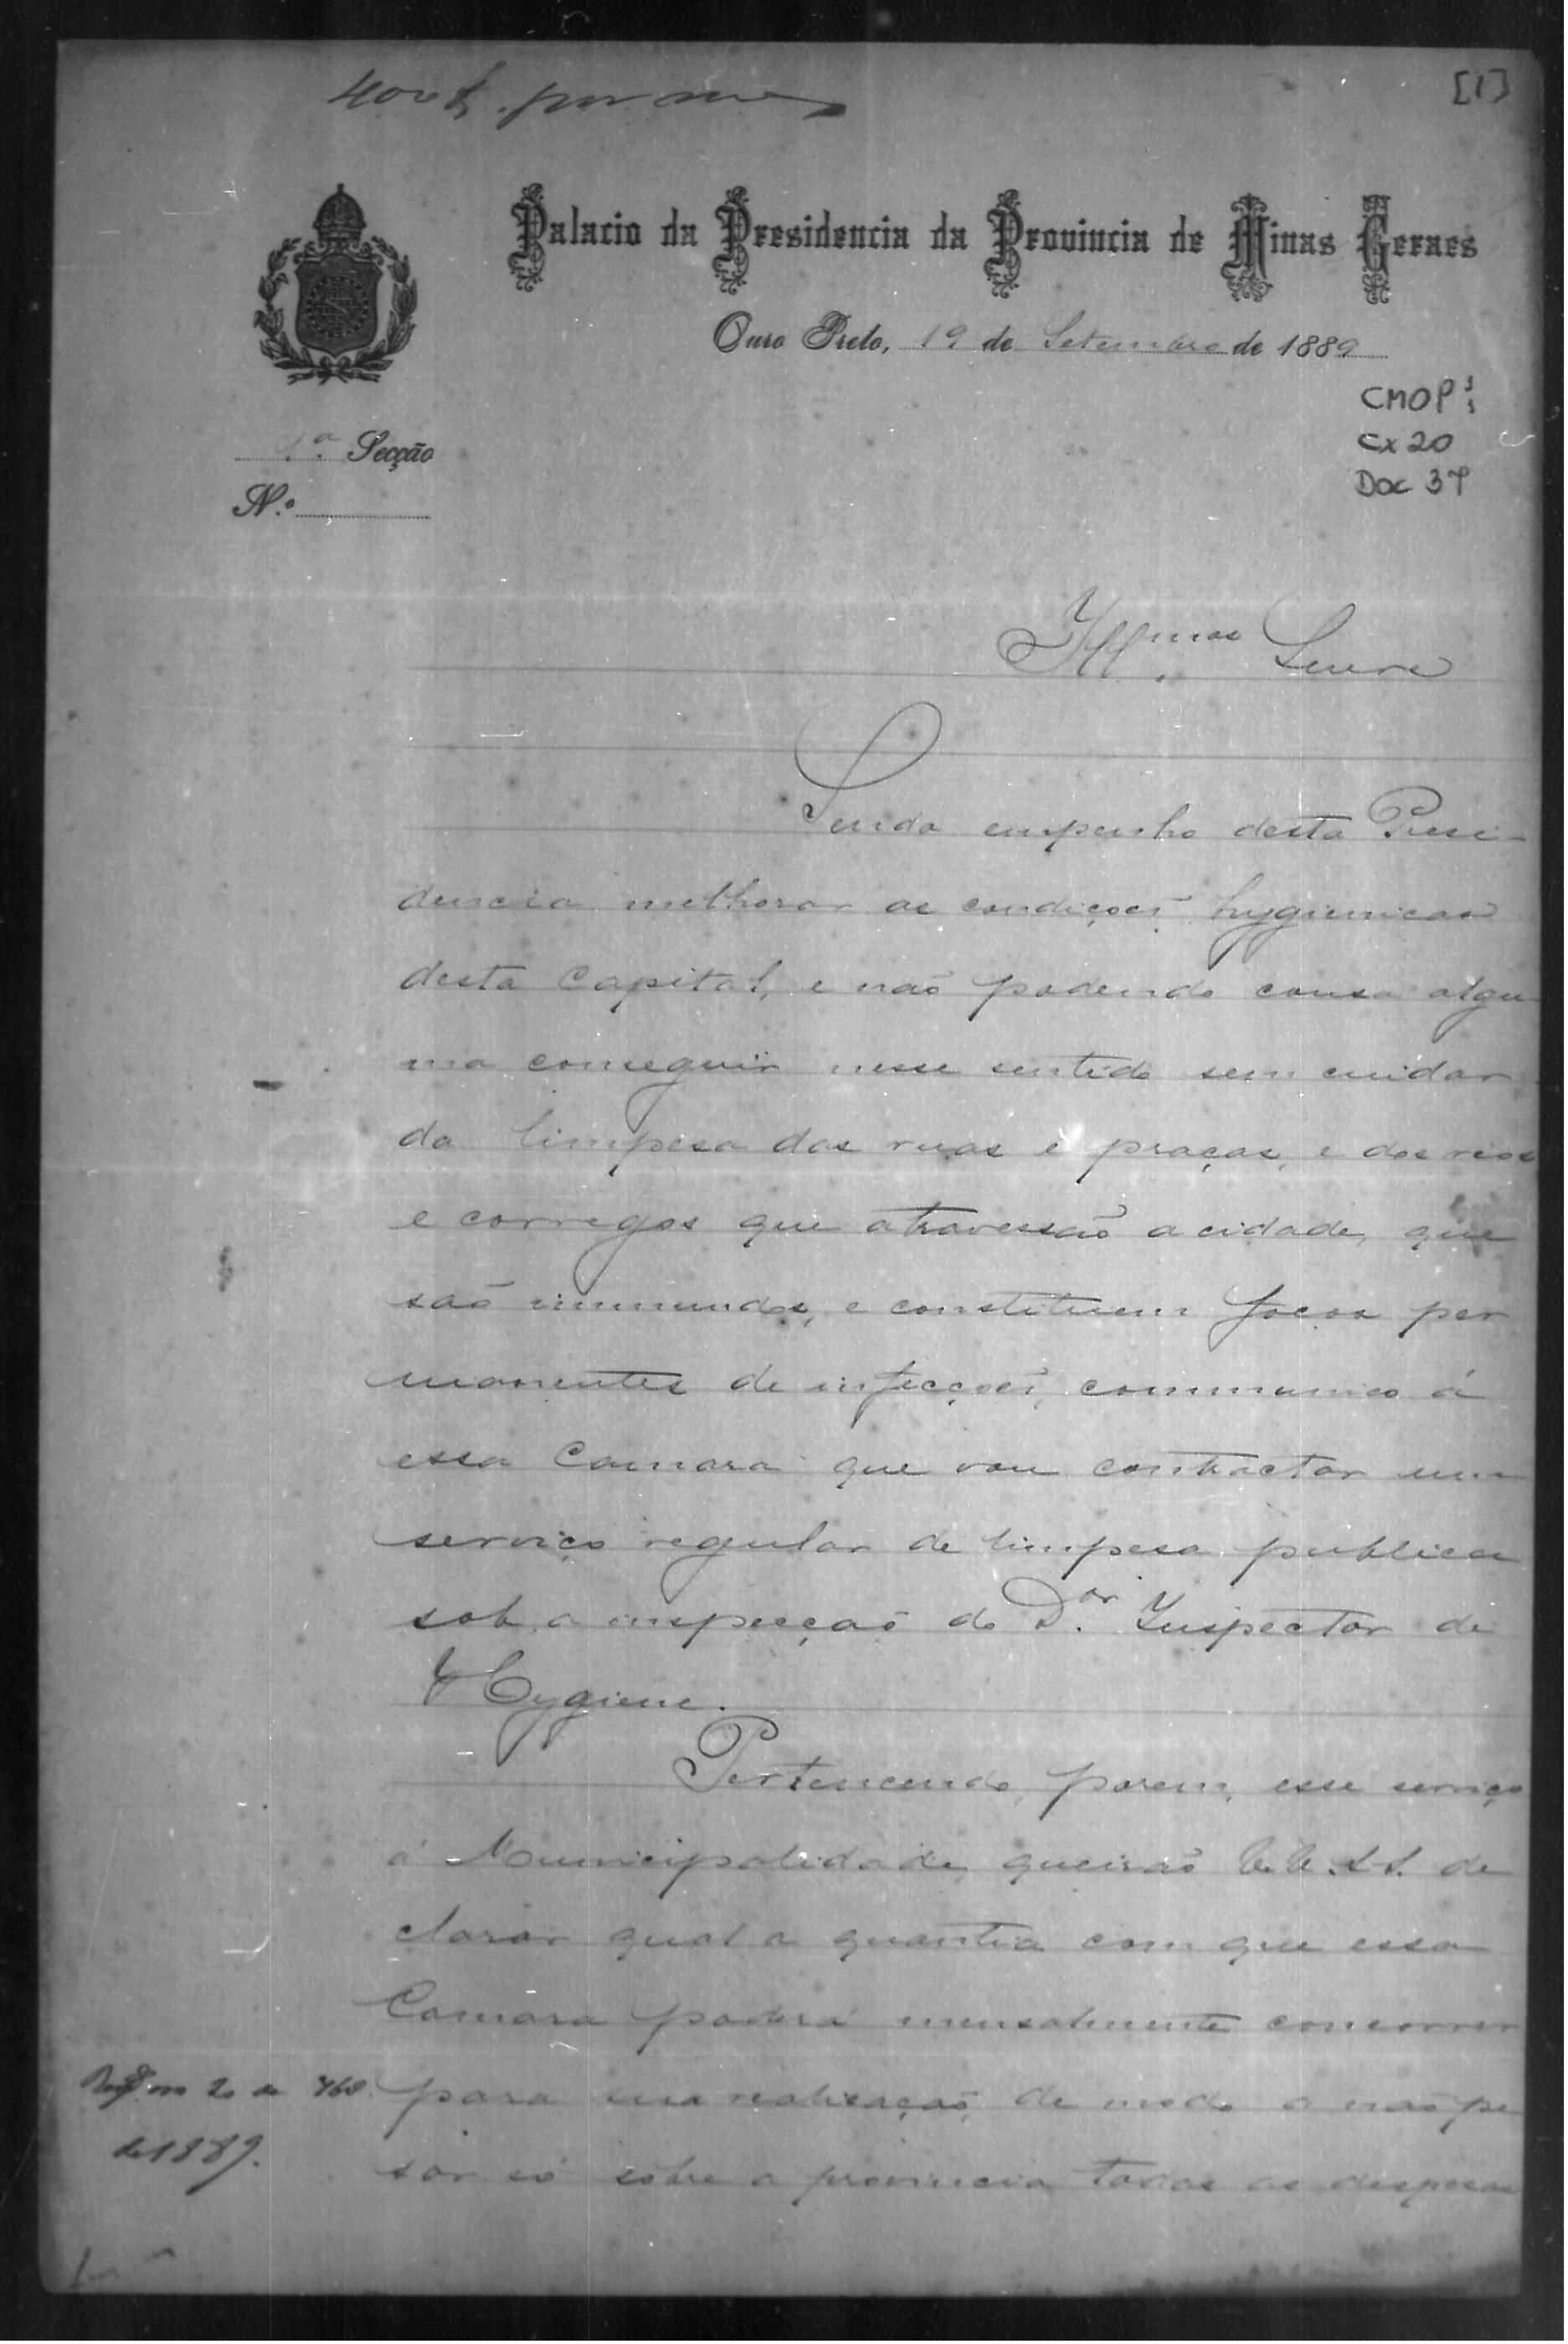 400$ por mez
[1]
Palacio da Presidencia da Provincia de Minas Geraes
Ouro Preto, 19 de Setembro de 1889
CMOP
Cx 20
Doc 37
1ª Secção
N.º
Ill.mos Senres
Sendo empenho desta Presi-
dencia melhorar as condições hygienicas
desta Capital, e não podendo cousa algu-
ma conseguir nesse sentido sem cuidar
da limpesa das ruas e praças, e dos rios
e corregos que atravessão a cidade, que
são immundos, e constituem focos per
manentes de infecções, communico á
essa Camara que vou contractar um
serviço regular de limpesa publica
sob a inspecção do Dor. Inspector de
Hygiene.
Pertencendo, porem, esse serviço
á Municipalidade, queirão V.V.S.S. de
clarar qual a quantia com que essa
Camara poderá mensalmente concorrer
para sua realisação, de modo a não pe
sar só sobre a provincia todas as despesas
de 1889.